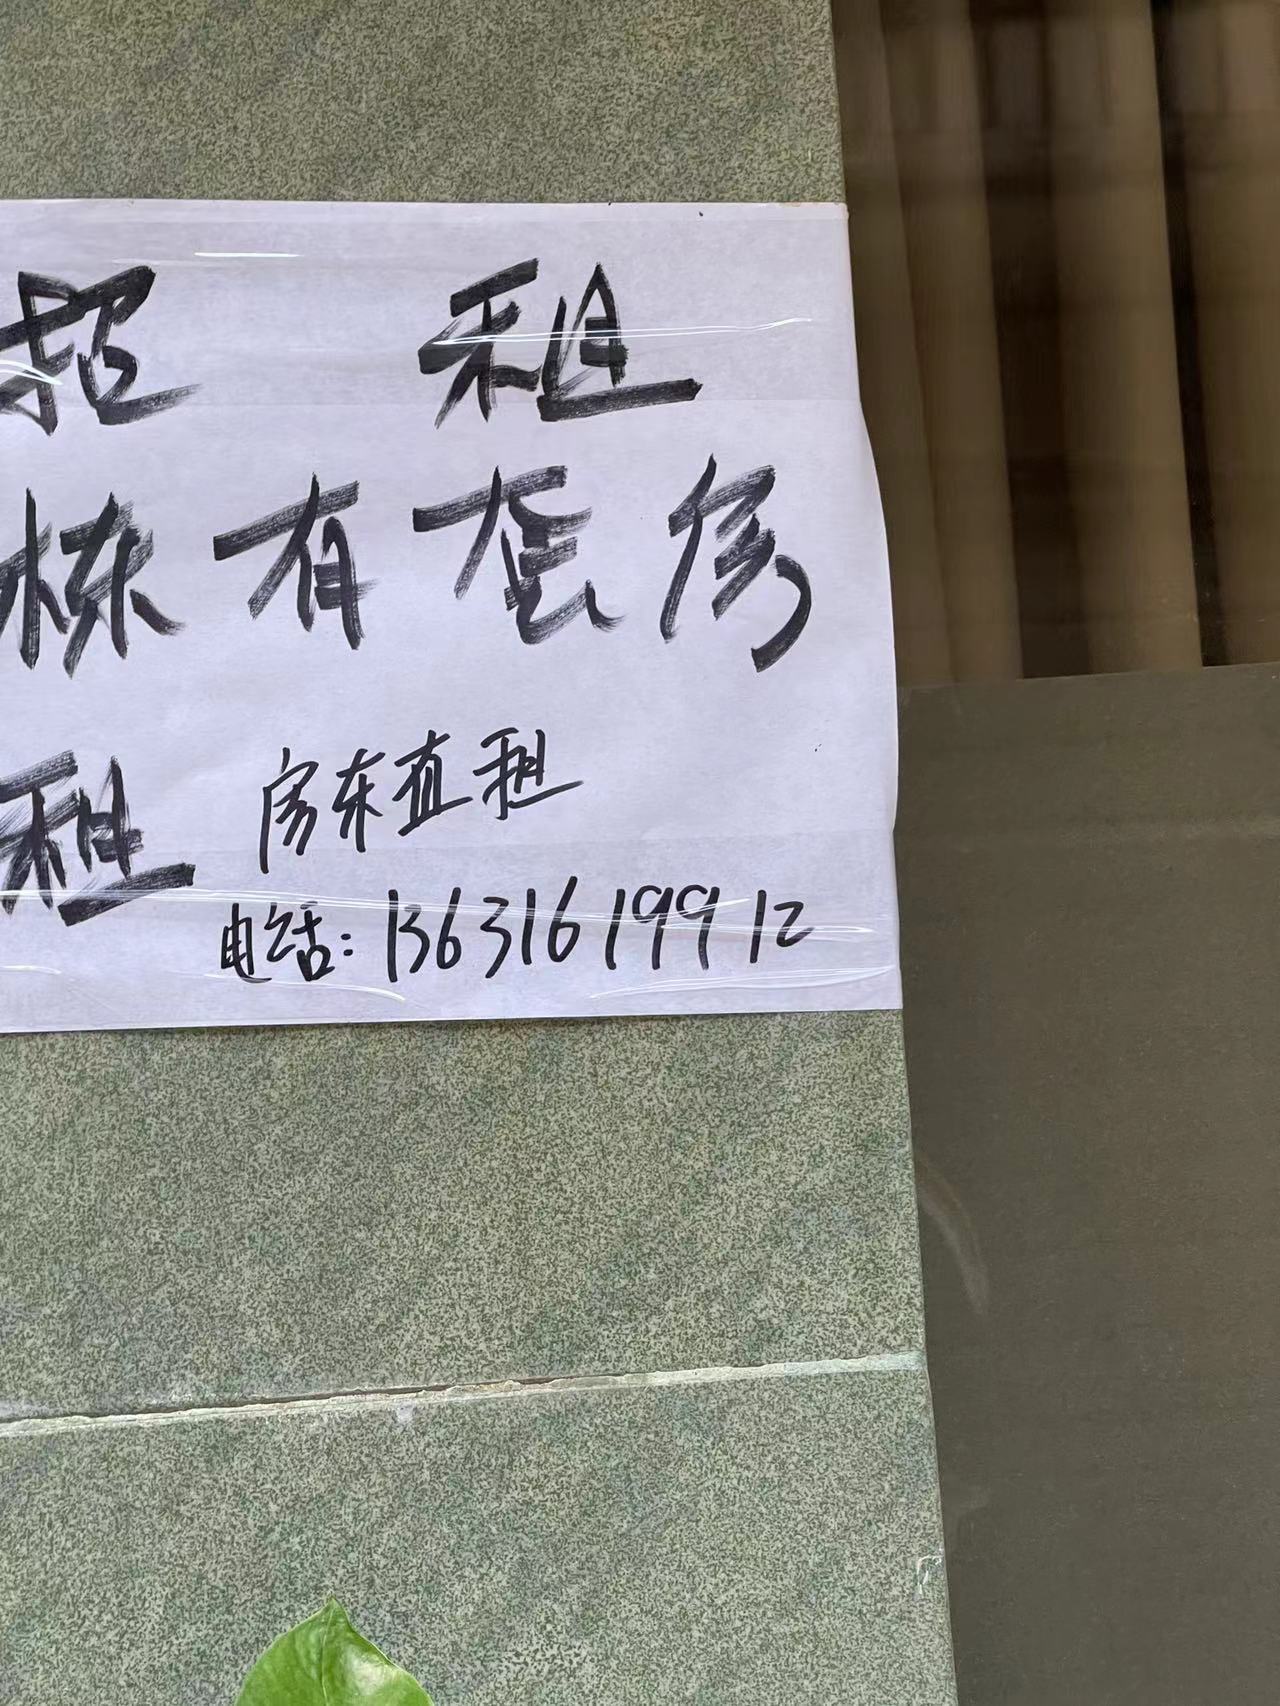 招 租
栋有套房
租 房东直租
电话：13631619912